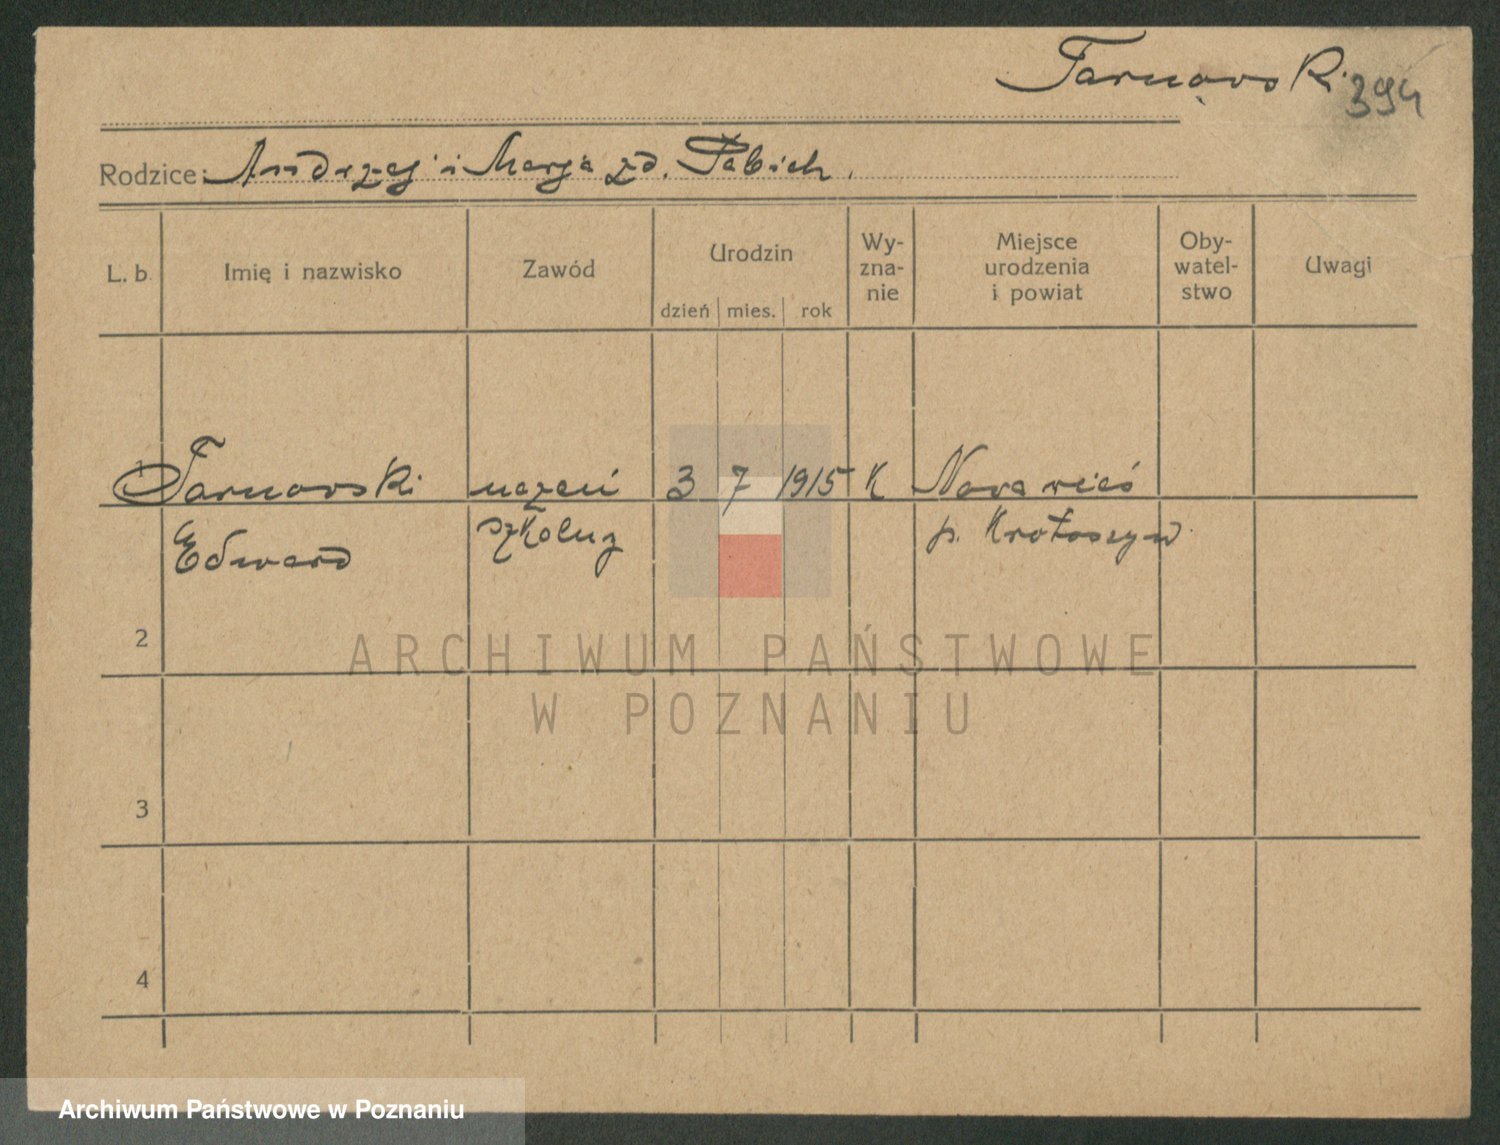 Tarnowski
394
Rodzice: Andrzej i Marja zd. Pabich.
L. b. Imię i nazwisko Zawód Urodzin dzień mies. rok Wy-zna-nie Miejsce urodzenia i powiat Oby-watel-stwo Uwagi
1 Tarnowski uczeń 3 7 1915 K Nowa wieś
Edward szkolny p. Krotoszyn
2
ARCHIWUM PAŃSTWOWE
W POZNANIU
3
4
Archiwum Państwowe w Poznaniu